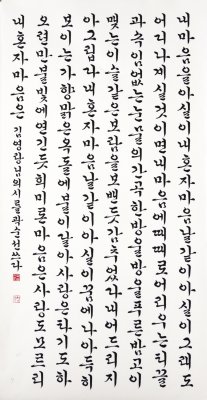 내마음을아실이내혼자마음날같이아실이그래도
어디나계실것이면내마음에때때로어리우는티끌
과속임없는눈물의간곡한방울방울푸른밤고이
맺는이슬같은보람을보밴듯감추었다내어드리지
아그립다내혼자마음날같이아실이꿈에나아득히
보이는가향맑은옥돌에불이달아사랑은타기도하
오련만불빛에연긴듯희미론마음은사랑도모르리
내혼자마음은 김영랑님의시를 쓰다